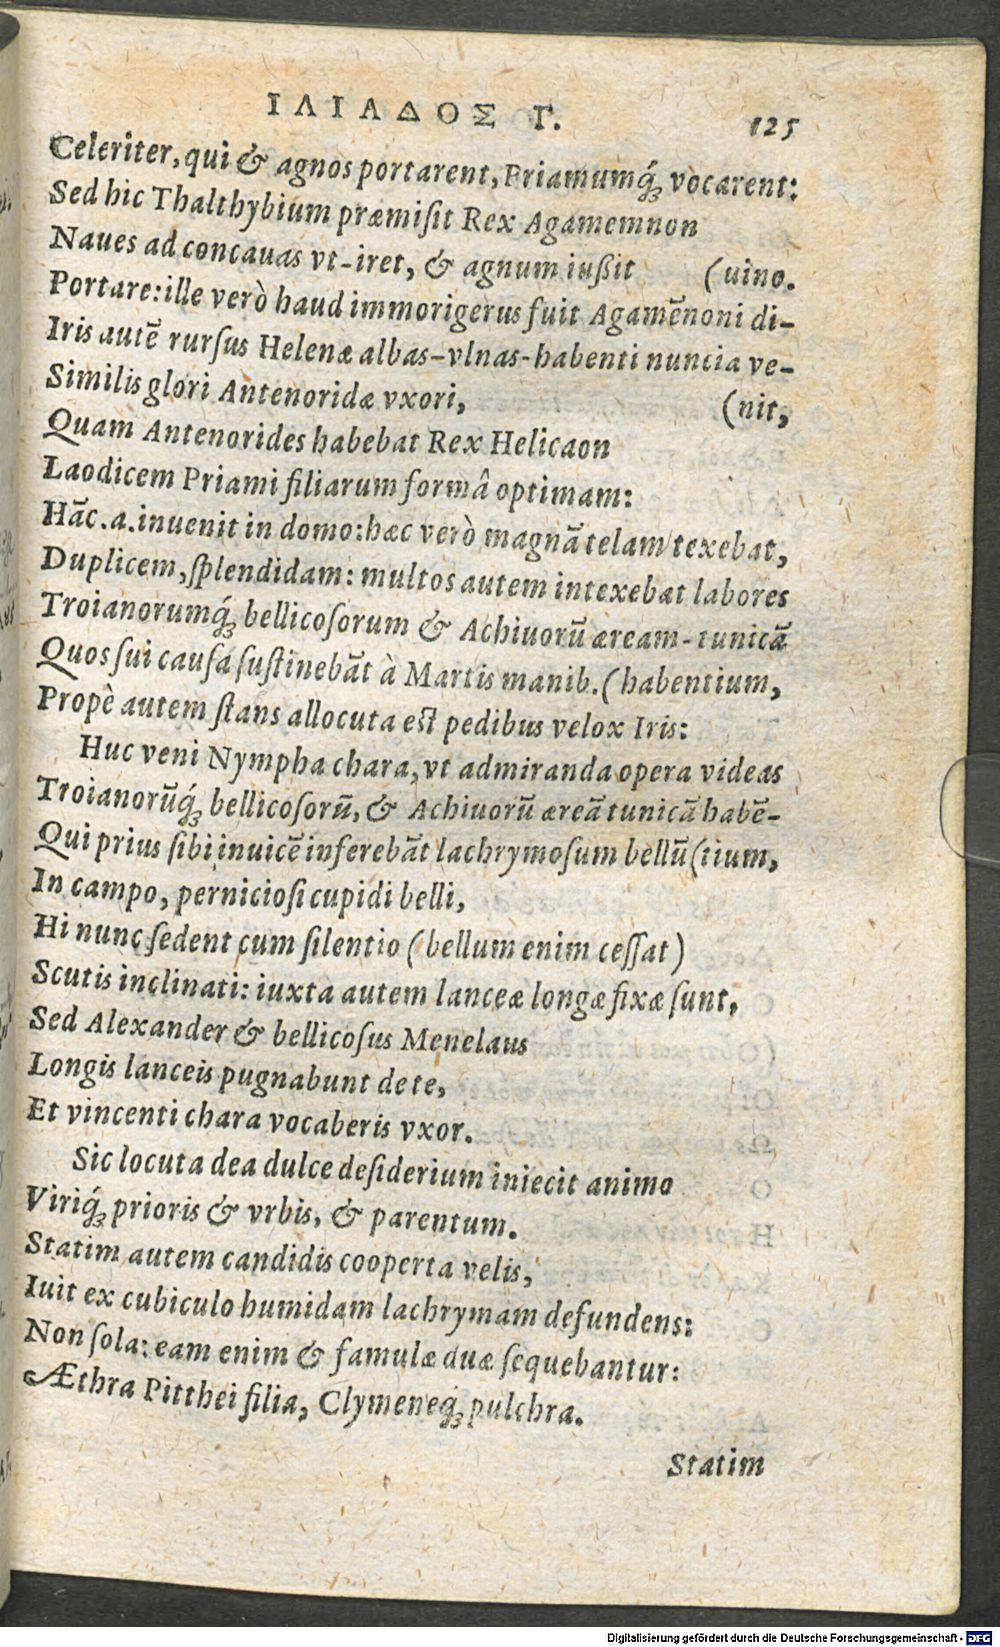 ΙΛΙΑΔΟΣ Γ. 125
Celeriter, qui & agnos portarent, Priamumq́; vocarent:
Sed hic Thalthybium præmiſit Rex Agamemnon
Naues ad concauas vt-iret, & agnum iußit (uino.
Portare: ille verò haud immorigerus fuit Agamẽnoni di-
Iris autẽ rurſus Helenæ albas-vlnas-habenti nuncia ve-
Similis glori Antenoridæ vxori, (nit,
Quam Antenorides habebat Rex Helicaon
Laodicem Priami filiarum formâ optimam:
Hãc.a.inuenit in domo: hæc verò magnã telam texebat,
Duplicem, ſplendidam: multos autem intexebat labores
Troianorumq́; bellicoſorum & Achiuorũ æream-tunicã
Quos ſui cauſa ſuſtinebãt à Martis manib. (habentium,
Propè autem ſtans allocuta eſt pedibus velox Iris:
Huc veni Nympha chara, vt admiranda opera videas
Troianorũq́; bellicoſorũ, & Achiuorũ æreã tunicã habẽ-
Qui prius ſibi inuicẽ inferebãt lachrymoſum bellũ (tium,
In campo, pernicioſi cupidi belli,
Hi nunc ſedent cum ſilentio (bellum enim ceſſat)
Scutis inclinati: iuxta autem lanceæ longæ fixæ ſunt,
Sed Alexander & bellicoſus Menelaus
Longis lanceis pugnabunt de te,
Et vincenti chara vocaberis vxor.
Sic locuta dea dulce deſiderium iniecit animo
Viriq́; prioris & vrbis, & parentum.
Statim autem candidis cooperta velis,
Iuit ex cubiculo humidam lachrymam defundens:
Non ſola: eam enim & famulæ duæ ſequebantur:
Æthra Pitthei filia, Clymeneq́; pulchra.
Statim
Digitalisierung gefördert durch die Deutsche Forschungsgemeinschaft - DFG